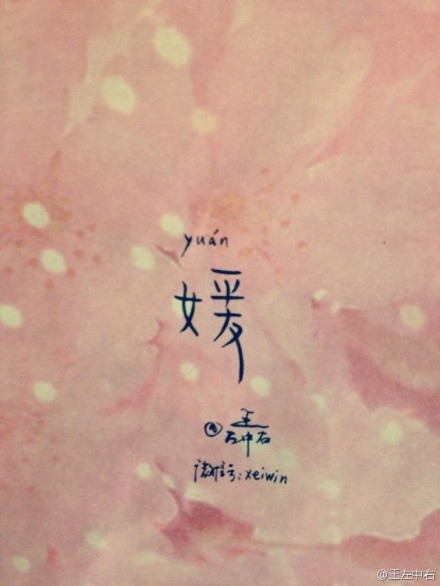 yuán
媛
@王
左中右
微信号:xeiwin
@王左中右